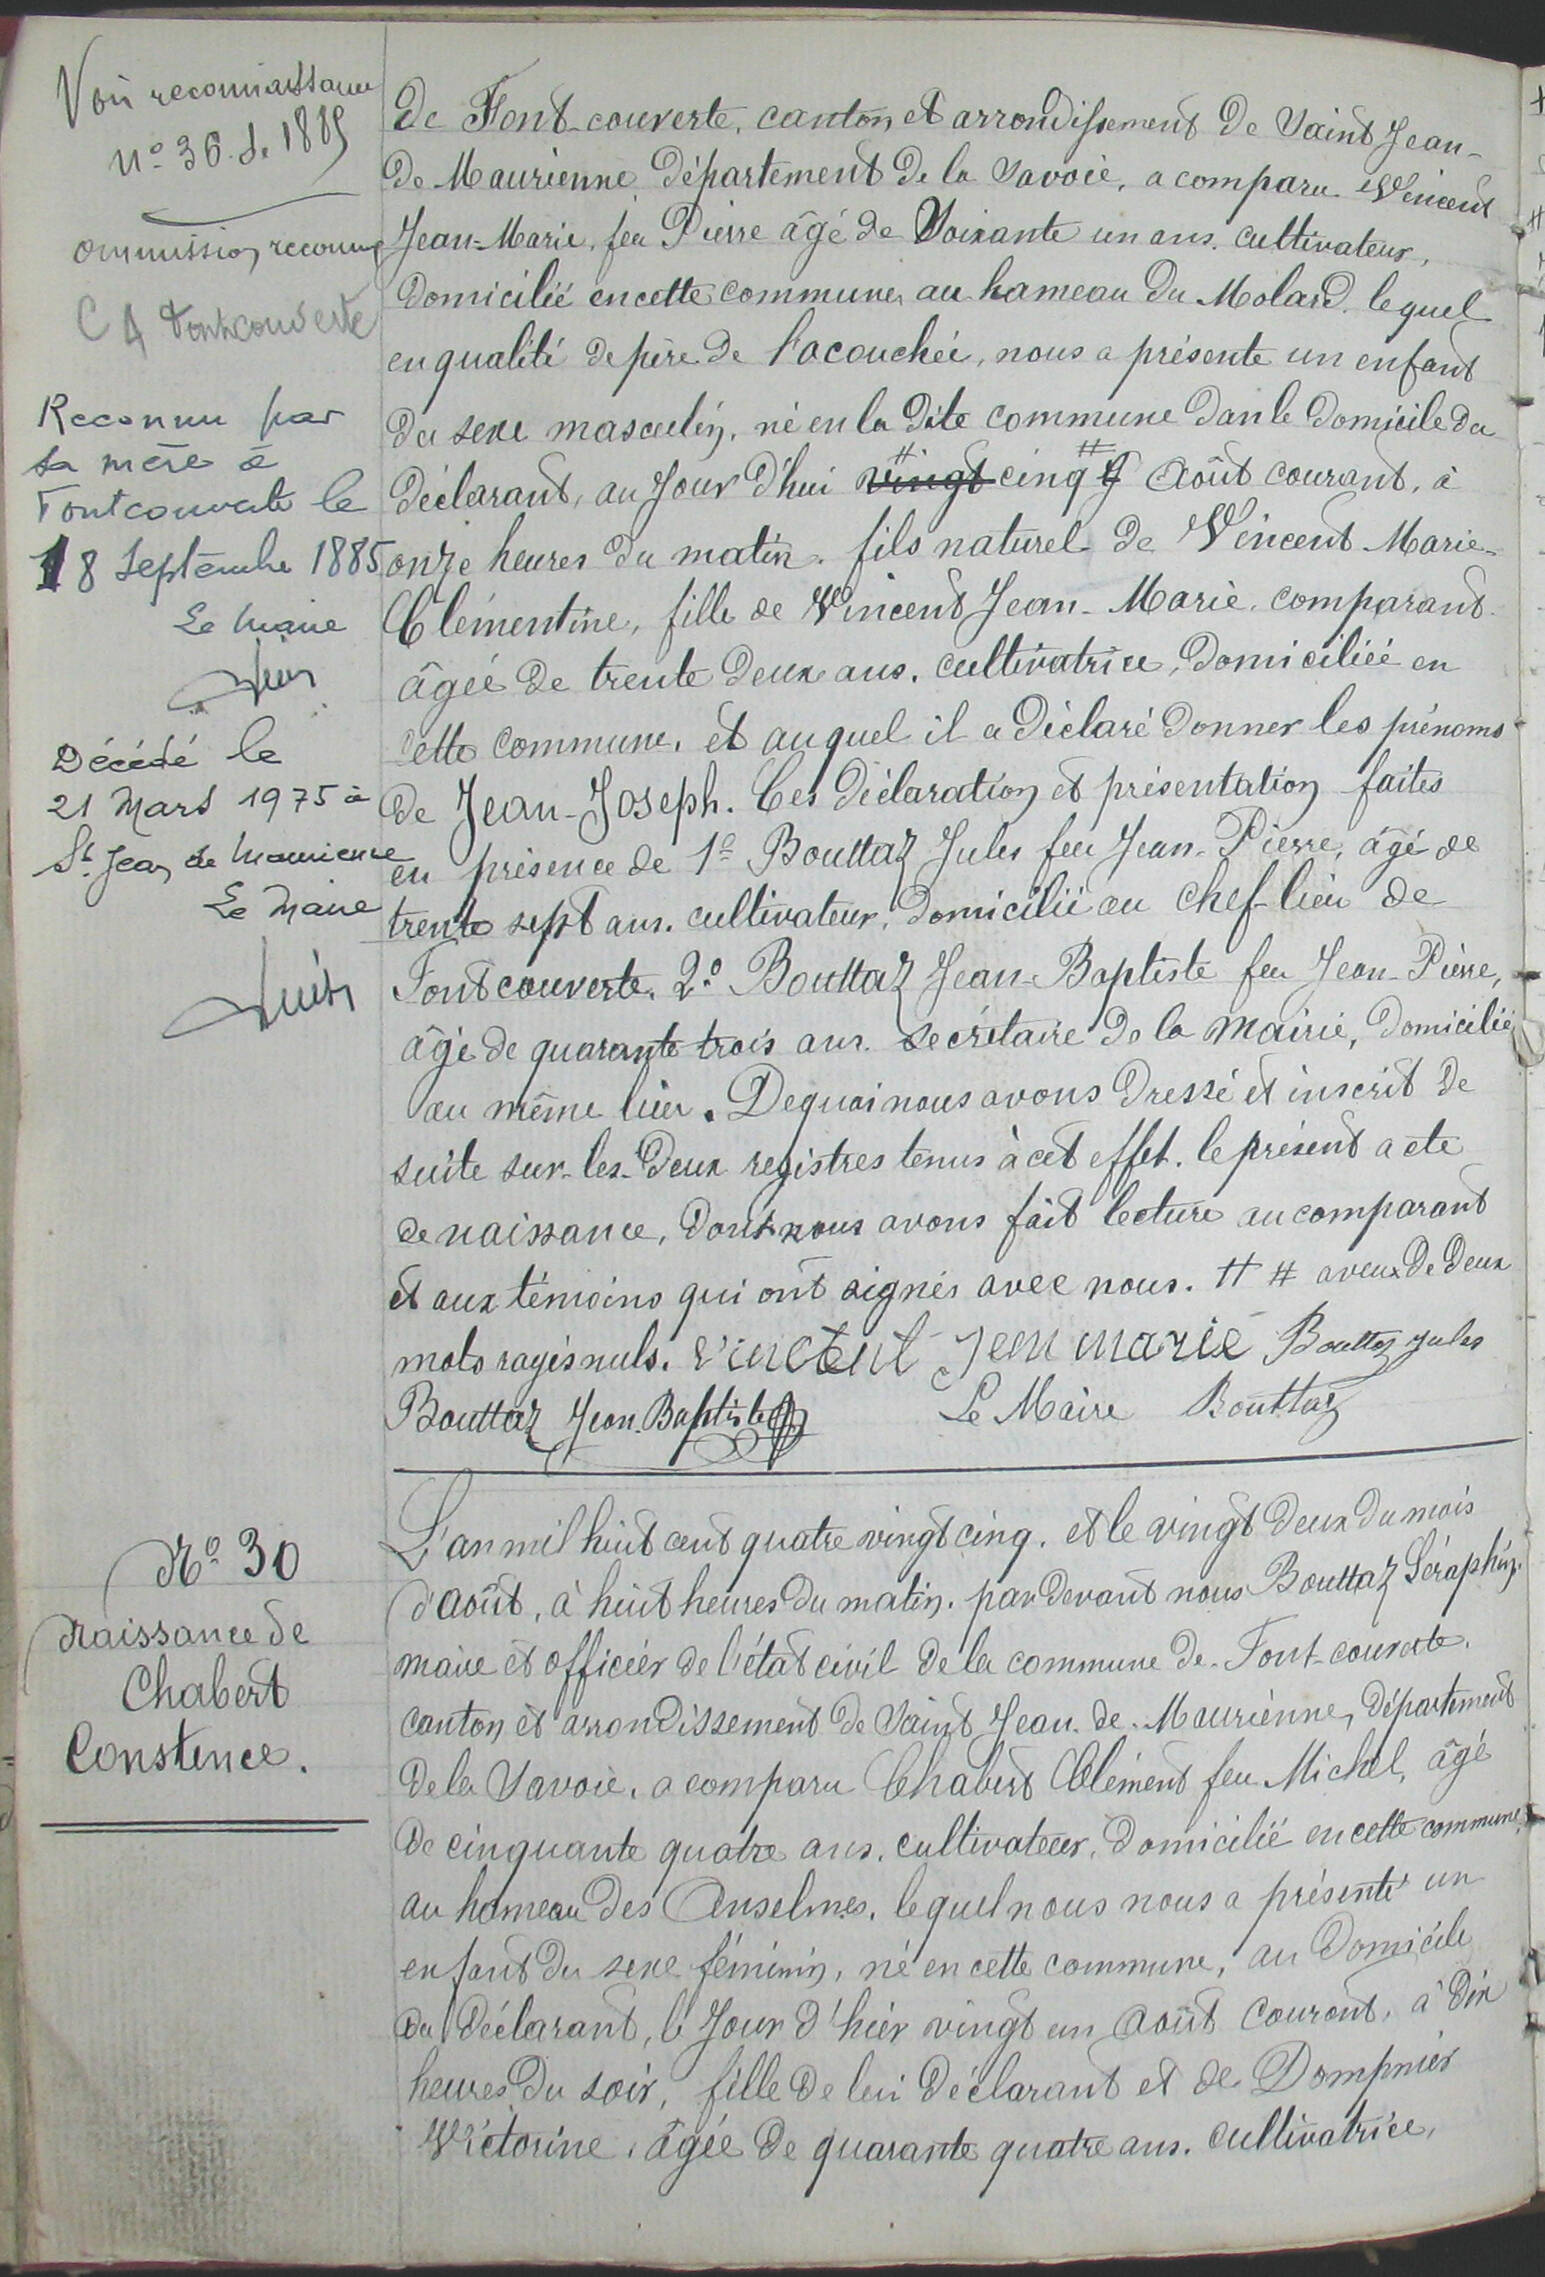 Voir reconnaissance
n° 36 de 1885
ommission reconnue
C 4 Fontcouverte
Reconnu par
sa mère à
Fontcouverte le
18 Septembre 1885
Le Maire
Décédé le
21 Mars 1975 à
St Jean de Maurienne
Le Maire
de Font-couverte, canton et arrondissement de Saint Jean-
de Maurienne département de la Savoie, a comparu Vincent
Jean-Marie, feu Pierre âgé de Soixante un ans, cultivateur,
domicilié en cette commune, au hameau du Molard, lequel
en qualité de père de l'acouchée, nous a présente un enfant
du sexe masculin, né en la dite commune dan le domicile du
déclarant, au Jour d'hui vingt cinq # Août courant, à
onze heures du matin. fils naturel de Vincent Marie-
Clémentine, fille de Vincent Jean-Marie, comparant
âgée de trente deux ans, cultivatrice, domiciliée en
cette commune, et auquel il a déclaré donner les prénoms
de Jean-Joseph. Ces déclaration et présentation faites
en présence de 1° Bouttaz Jules feu Jean-Pierre, âgé de
trente sept ans, cultivateur, domicilié au chef-lieu de
Fontcouverte, 2° Bouttaz Jean-Baptiste feu Jean-Pierre,
âgé de quarante trois ans, secrétaire de la mairie, domicilié
au même lieu. De quoi nous avons dressé et inscrit de
suite sur-les-deux registres tenus à cet effet, le présent acte
de naissance, dont nous avons fait lecture au comparant
et aux témoins qui ont signés avec nous. # # aveux de deux
mots rayés nuls. Vincent Jean marie Bouttaz jules
Bouttaz Jean-Baptiste Le Maire Bouttaz
N° 30
Naissance de
Chabert
Constence.
L'an mil huit cent quatre vingt cinq, et le vingt deux du mois
d'août, à huit heures du matin, par devant nous Bouttaz Séraphin,
maire et officier de l'état civil de la commune de Font-couverte,
canton et arrondissement de Saint Jean-de-Maurienne, département
de la Savoie, a comparu Chabert Clément feu Michel, âgé
de cinquante quatre ans, cultivateur, domicilié en cette commune,
au hameau des Anselmes, lequel nous nous a présenté un
enfant du sexe féminin, né en cette commune, au domicile
du déclarant, le Jour d'hier vingt un Août courant, à dix
heures du soir, fille de lui déclarant et de Dompnier
Victorine, âgée de quarante quatre ans, cultivatrice,